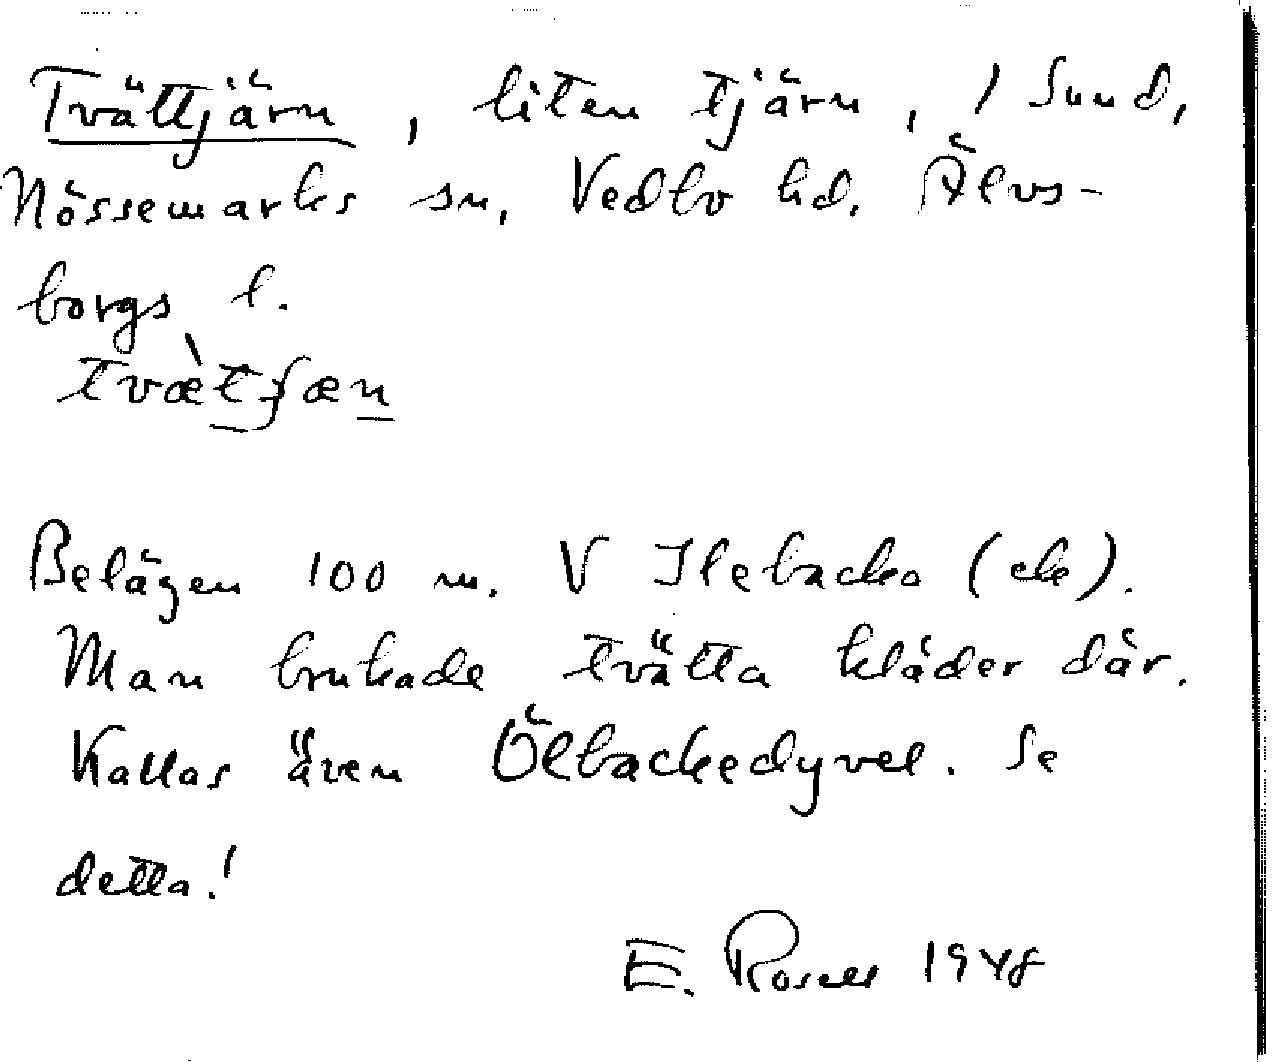 Tvättjärn, liten tjärn, / Sund,
Nössemarks sn, Vedbo hd. Älvs-
borgs l.
tvæ̀tʃæn
Belägen 100 m. V Ilebacka (ek).
Man brukade tvätta kläder där.
Kallas även Ölbackedyvel. Se
detta!
E. Rosell 1948